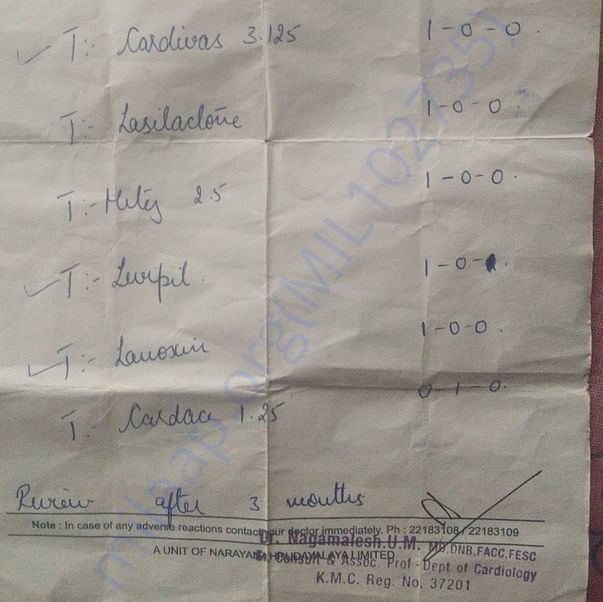 ✓ T:- Cardivas 3.125 1-0-0.
T:- Lasilactone 1-0-0
T:- Metoz 2.5 1-0-0.
✓ T:- Levipil. 1-0-.
✓ T:- Lanoxin 1-0-0.
T:- Cardace 1.25 0-1-0.
Review after 3 months
Note : In case of any adverse reactions contact your doctor immediately. Ph : 22183108 / 22183109
Dr. Nagamalesh.U.M. MD,DNB,FACC,FESC
A UNIT OF NARAYANA HRUDAYALAYA LIMITED
Consult & Assoc. Prof - Dept of Cardiology
K.M.C. Reg. No. 37201
milaap.org(MIL102735)